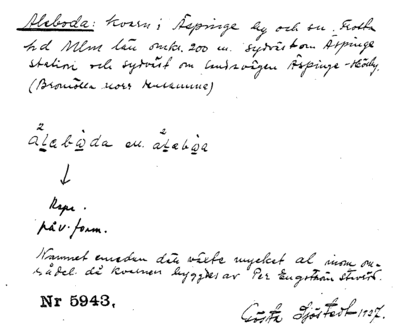 Aleboda: kvarn i Äspinge by och sn. Frosta
hd Mlm län omkr. 200 m. sydväst om Äspinge
station och sydväst om landsvägen Äspinge-Hörby.
(Bromölla norr
alebåda el. alebåa
↓
påv. form.
Namnet emedan där växte mycket al inom om-
rådet då kvarnen byggdes av Per Engström
Nr 5943.
Gösta Sjöstedt 1927.